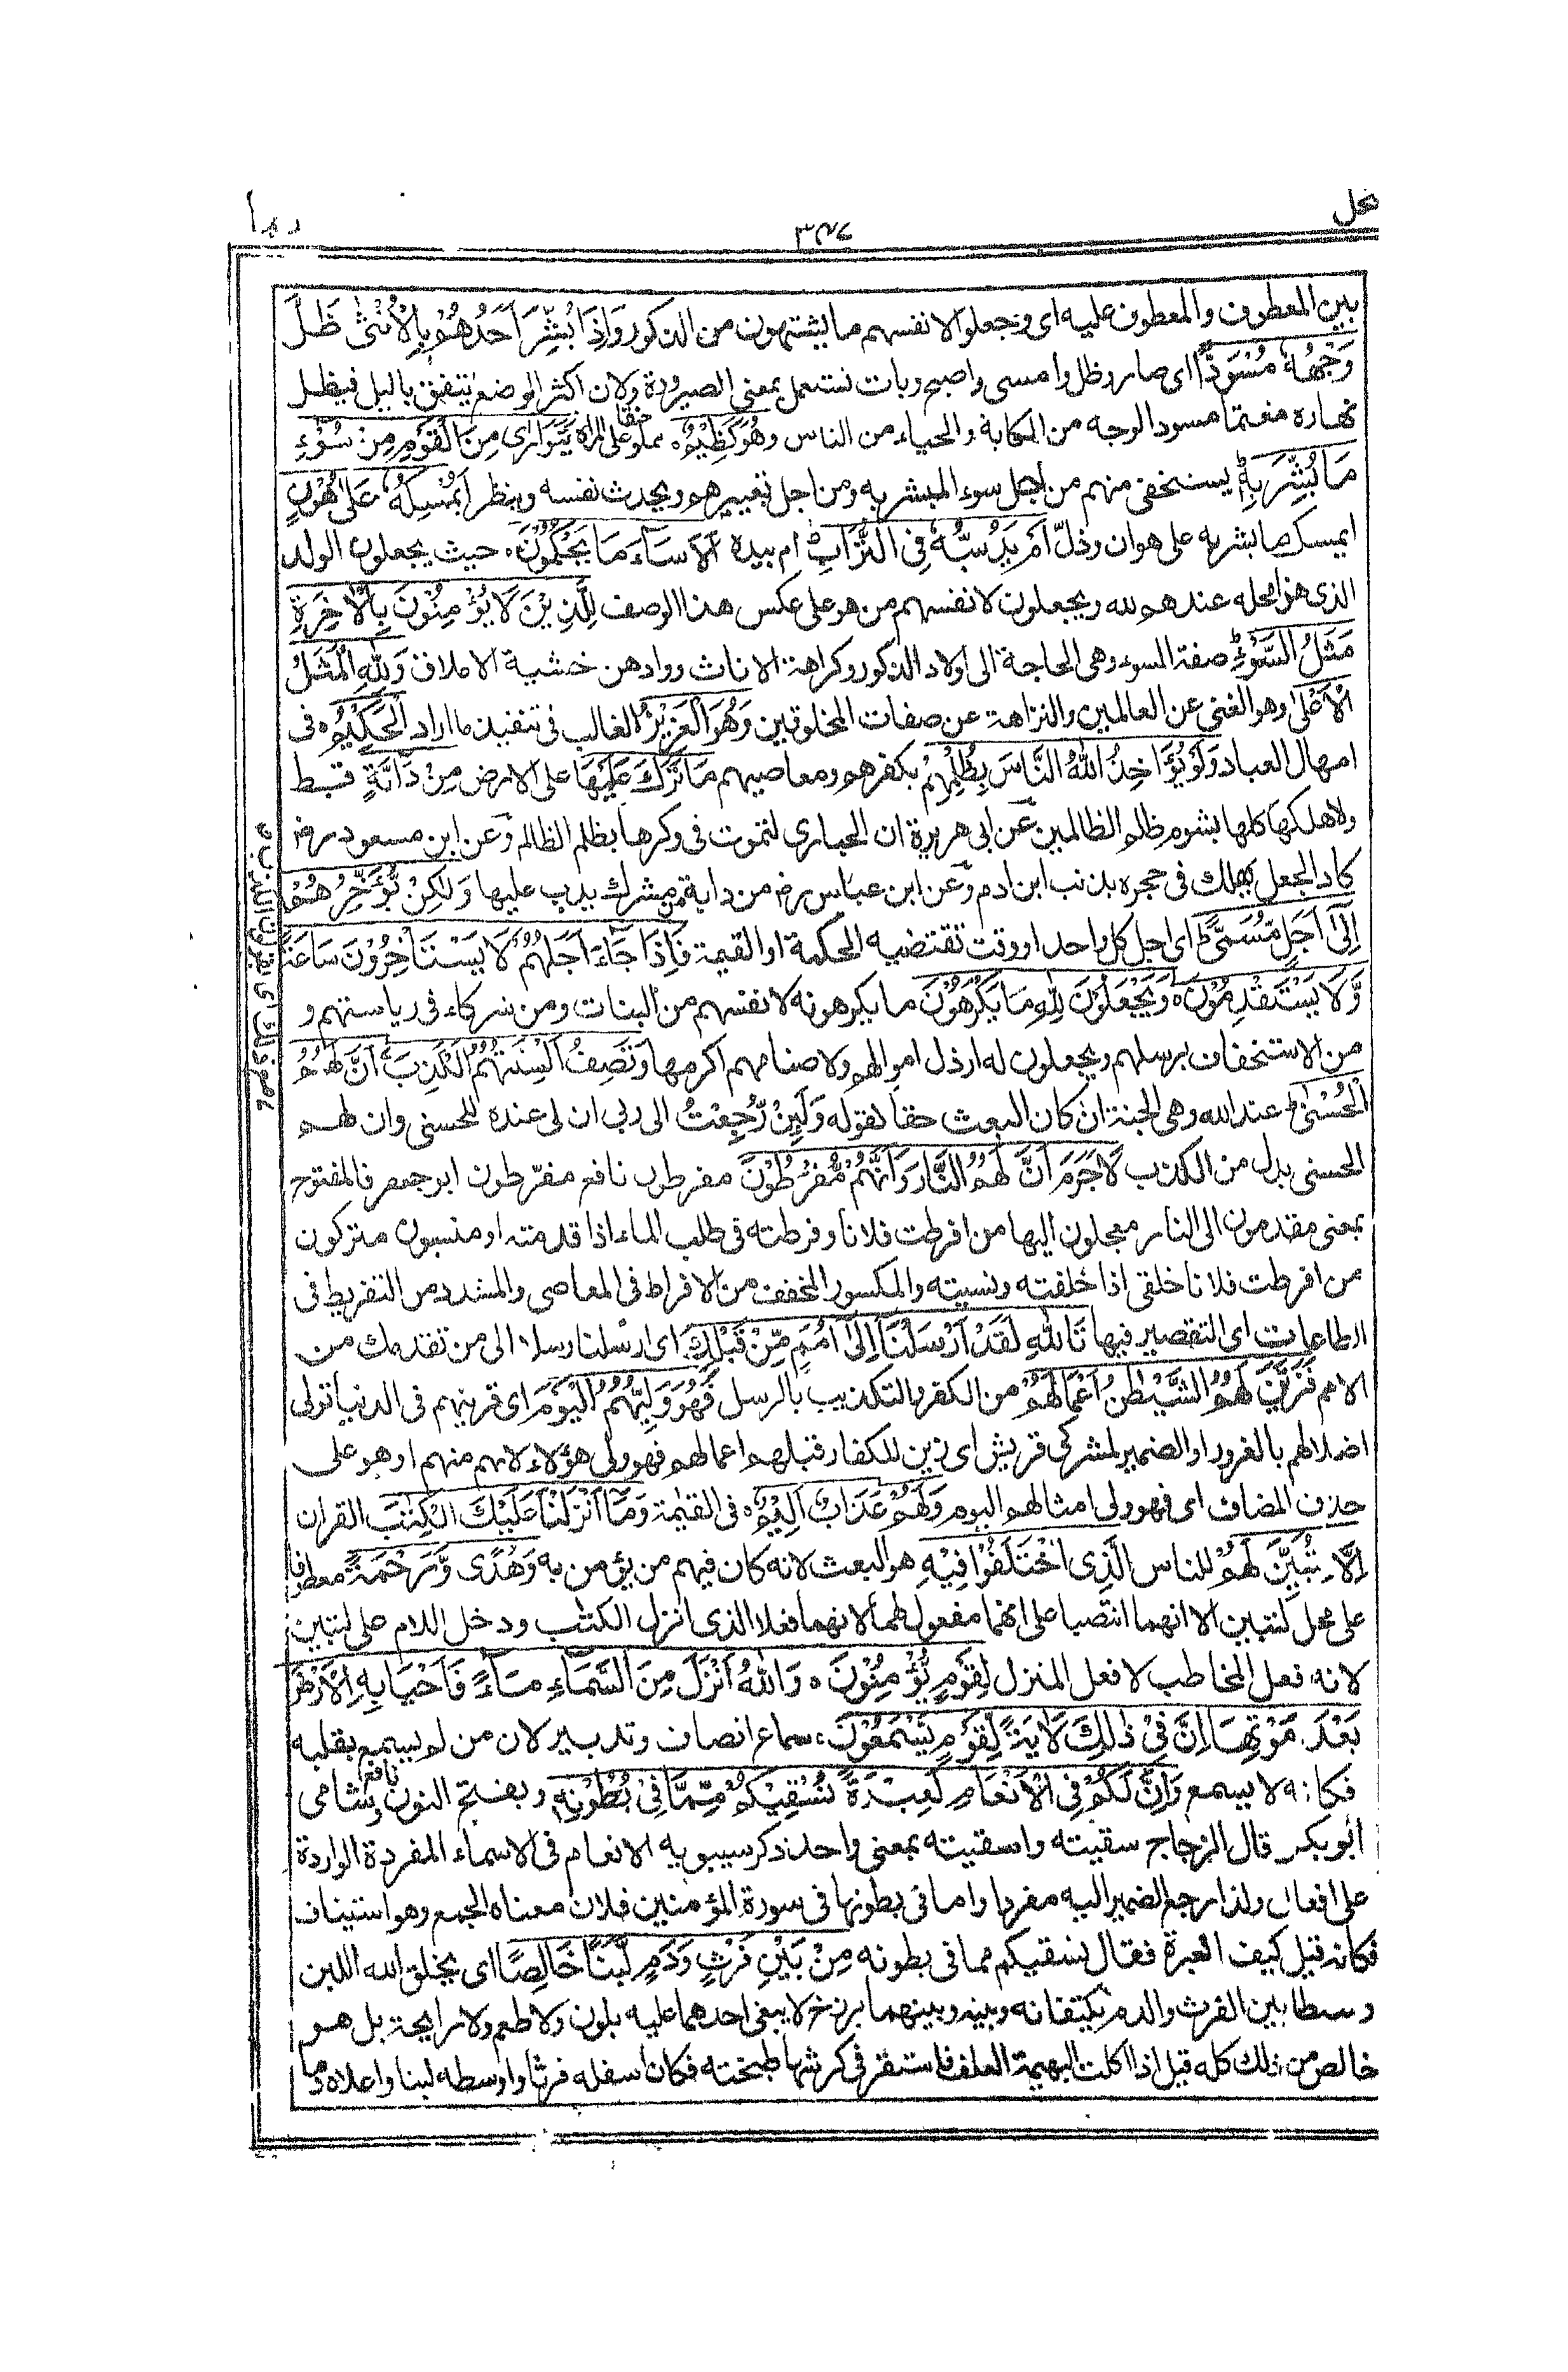 نحل
بين المعطوف والمعطوف عليه اى وجعلوا لانفسهم ما يشتهون من الذكور وَاِذَا بُشِّرَ اَحَدُهُمْ بِالْاُنْثٰى ظَلَّ
وَجْهُهٗ مُسْوَدًّا اى صار وظل وامسى واصبح وبات تستعمل بمعنى الصيرورة ولان اكثر الوضع يتفق بالليل فيظل
نهاره مغتما مسود الوجه من الكابة والحياء من الناس وَهُوَ كَظِيْمٌ ه مملو حنقا على المراة يَتَوَارٰى مِنَ الْقَوْمِ مِنْ سُوْٓءِ
مَا بُشِّرَ بِهٖ ط يستخفى منهم من اجل سوء المبشر به ومن اجل تعييرهم ويحدث نفسه وينظر اَيُمْسِكُهٗ عَلٰى هُوْنٍ
ايمسك ما بشر به على هوان وذلّ اَمْ يَدُسُّهٗ فِى التُّرَابِ ط ام يىده اَلَا سَآءَ مَا يَحْكُمُوْنَ ه حيث يجعلون الولد
الذى هذا محله عندهم لله ويجعلون لانفسهم من هو على عكس هذا الوصف لِلَّذِيْنَ لَا يُؤْمِنُوْنَ بِالْاٰخِرَةِ
مَثَلُ السَّوْءِ ج صفة السوء وهى الحاجة الى اولاد الذكور وكراهة الاناث ووادهن خشية الاملاق وَلِلّٰهِ الْمَثَلُ
الْاَعْلٰى وهو الغنى عن العالمين والنزاهة عن صفات المخلوقين وَهُوَ الْعَزِيْزُ الغالب فى تنفيذ ما اراد الْحَكِيْمُ ه فى
امهال العباد وَلَوْ يُؤَاخِذُ اللّٰهُ النَّاسَ بِظُلْمِهِمْ بكفرهم ومعاصيهم مَا تَرَكَ عَلَيْهَا على الارض مِنْ دَآبَّةٍ قط
ولاهلكها كلها بشوم ظلم الظالمين عن ابى هريرة ان الحبارى لتموت فى وكرها بظلم الظالم وعن ابن مسعود رض
كاد الجعل يهلك فى حجره بذنب ابن ادم وعن ابن عباس رض من دابة من مشرك يدب عليها وَلٰكِنْ يُّؤَخِّرُهُمْ
اِلٰٓى اَجَلٍ مُّسَمًّى ط اى اجل كل واحد او وقت تقتضيه الحكمة او القيمة فَاِذَا جَآءَ اَجَلُهُمْ لَا يَسْتَاْخِرُوْنَ سَاعَةً
وَّلَا يَسْتَقْدِمُوْنَ ه وَيَجْعَلُوْنَ لِلّٰهِ مَا يَكْرَهُوْنَ ما يكرهونه لانفسهم من البنات ومن شركاء فى رياستهم و
من الاستخفاف برسلهم ويجعلون له ارذل اموالهم ولاصنامهم اكرمها وَتَصِفُ اَلْسِنَتُهُمُ الْكَذِبَ اَنَّ لَهُمُ
الْحُسْنٰى ط عند الله وهى الجنة ان كان البعث حقا لقوله وَلَئِنْ رُّجِعْتُ الى ربى ان لى عنده للحسنى وان لهم
الحسنى بدل من الكذب لَا جَرَمَ اَنَّ لَهُمُ النَّارَ وَاَنَّهُمْ مُّفْرَطُوْنَ مفرطون نافع مفرّطون ابو جعفر فالمفتوح
بمعنى مقدمون الى النار معجلون اليها من افرطت فلانا وفرطته فى طلب الماء اذا قدمته او منسيون متركون
من افرطت فلانا خلفى اذا خلفته ونسيته والمكسور المخفف من الافراط فى المعاصى والمشدد من التفريط فى
الطاعات اى التقصير فيها تَاللّٰهِ لَقَدْ اَرْسَلْنَآ اِلٰٓى اُمَمٍ مِّنْ قَبْلِكَ اى ارسلنا رسلا الى من تقدمك من
الامم فَزَيَّنَ لَهُمُ الشَّيْطٰنُ اَعْمَالَهُمْ من الكفر والتكذيب بالرسل فَهُوَ وَلِيُّهُمُ الْيَوْمَ اى قرينهم فى الدنيا تولى
اضلالهم بالغرور او الضمير لمشركى قريش اى زين للكفار قبلهم اعمالهم فهو ولى هؤلاء لانهم منهم او هو على
حذف المضاف اى فهو ولى امثالهم اليوم وَلَهُمْ عَذَابٌ اَلِيْمٌ ه فى القيٰمة وَمَآ اَنْزَلْنَا عَلَيْكَ الْكِتٰبَ القران
اِلَّا لِتُبَيِّنَ لَهُمُ للناس الَّذِى اخْتَلَفُوْا فِيْهِ هو البعث لانه كان فيهم من يؤمن به وَهُدًى وَّرَحْمَةً معطوفا
على محل لتبين الا انهما انتصبا على انهما مفعول لهما لانهما فعلا الذى انزل الكتٰب ودخل اللام على لتبين
لانه فعل المخاطب لا فعل المنزل لِقَوْمٍ يُّؤْمِنُوْنَ ه وَاللّٰهُ اَنْزَلَ مِنَ السَّمَآءِ مَآءً فَاَحْيَا بِهِ الْاَرْضَ
بَعْدَ مَوْتِهَا اِنَّ فِىْ ذٰلِكَ لَاٰيَةً لِّقَوْمٍ يَّسْمَعُوْنَ ه سماع انصاف وتدبير لان من لم يسمع بقلبه
فكانه لا يسمع وَاِنَّ لَكُمْ فِى الْاَنْعَامِ لَعِبْرَةً نُسْقِيْكُمْ مِّمَّا فِىْ بُطُوْنِهٖ وبفتح النون نافع وشامى
ابو بكر قال الزجاج سقيته واسقيته بمعنى واحد ذكر سيبويه الانعام فى الاسماء المفردة الواردة
على افعال ولذا رجع الضمير اليه مفردا واما فى بطونها فى سورة المؤمنين فلان معناه الجمع وهو استيناف
فكانه قيل كيف العبرة فقال نسقيكم مما فى بطونه مِنْ بَيْنِ فَرْثٍ وَّدَمٍ لَّبَنًا خَالِصًا اى يخلق الله اللبن
وسطا بين الفرث والدم يكتنفانه وبينه وبينهما برزخ لا يبغى احدهما عليه بلون ولا طعم ولا رايحة بل هو
خالص من ذلك كله قيل اذا اكلت البهيمة العلف فاستقر فى كرشها طبخته فكان اسفله فرثا واوسطه لبنا واعلاه دما